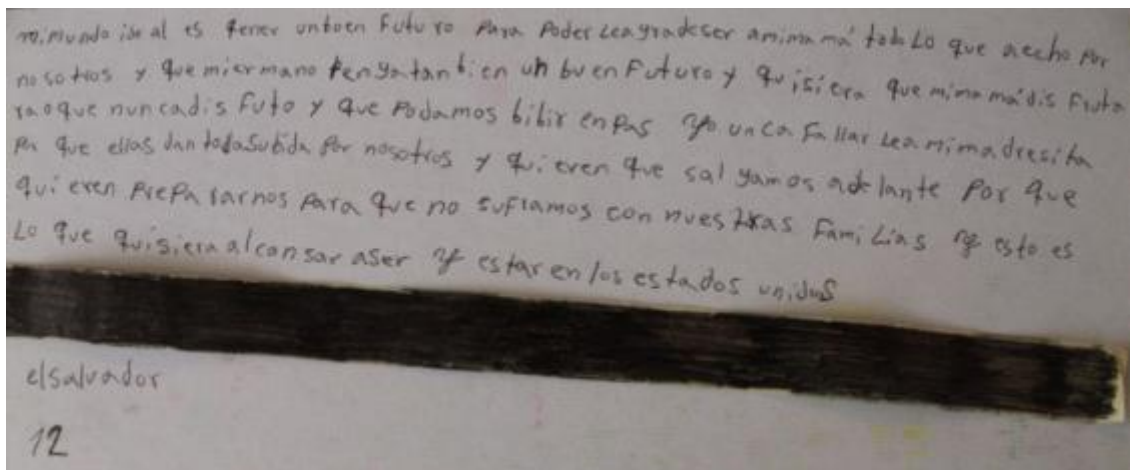 mi mundo ideal es tener un buen Futuro para Poder Leagradeser amimamá todo Lo que aecho por
nosotros y quemiermano tengatanbien un buen Futuro y quisiera que mimamá disfruta
ra oque nuncadisfuto y que Podamos bibir enpas y nunca fallarlea mimadresita
por que ellas dan todasubida por nosotros y quieren que salgamos adelante Por que
quieren prepararnos para que no suframos con nuestras FamiLias y esto es
Lo que quisiera alcansar aser y estar en los estados unidos
elsalvador
12